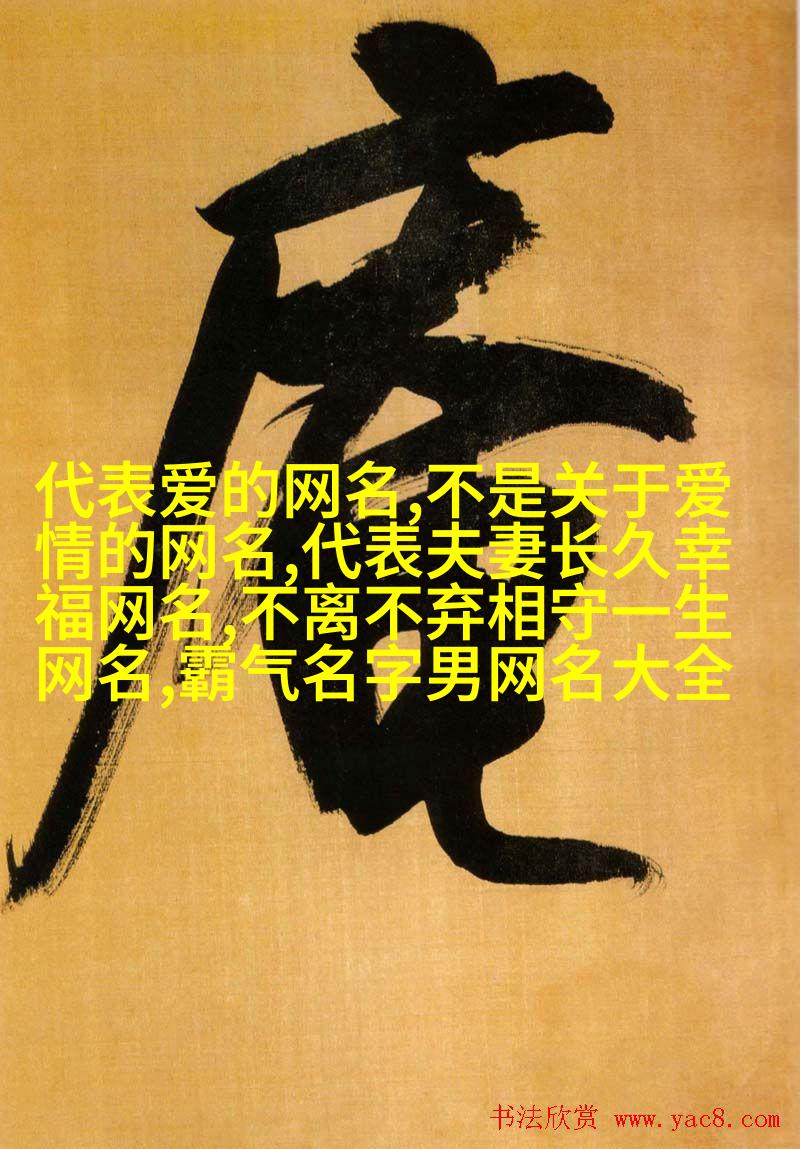 庵
代表爱的网名,不是关于爱
情的网名,代表夫妻长久幸
福网名,不离不弃相守一生
网名,霸气名字男网名大全
书法欣赏 www.yac8.com